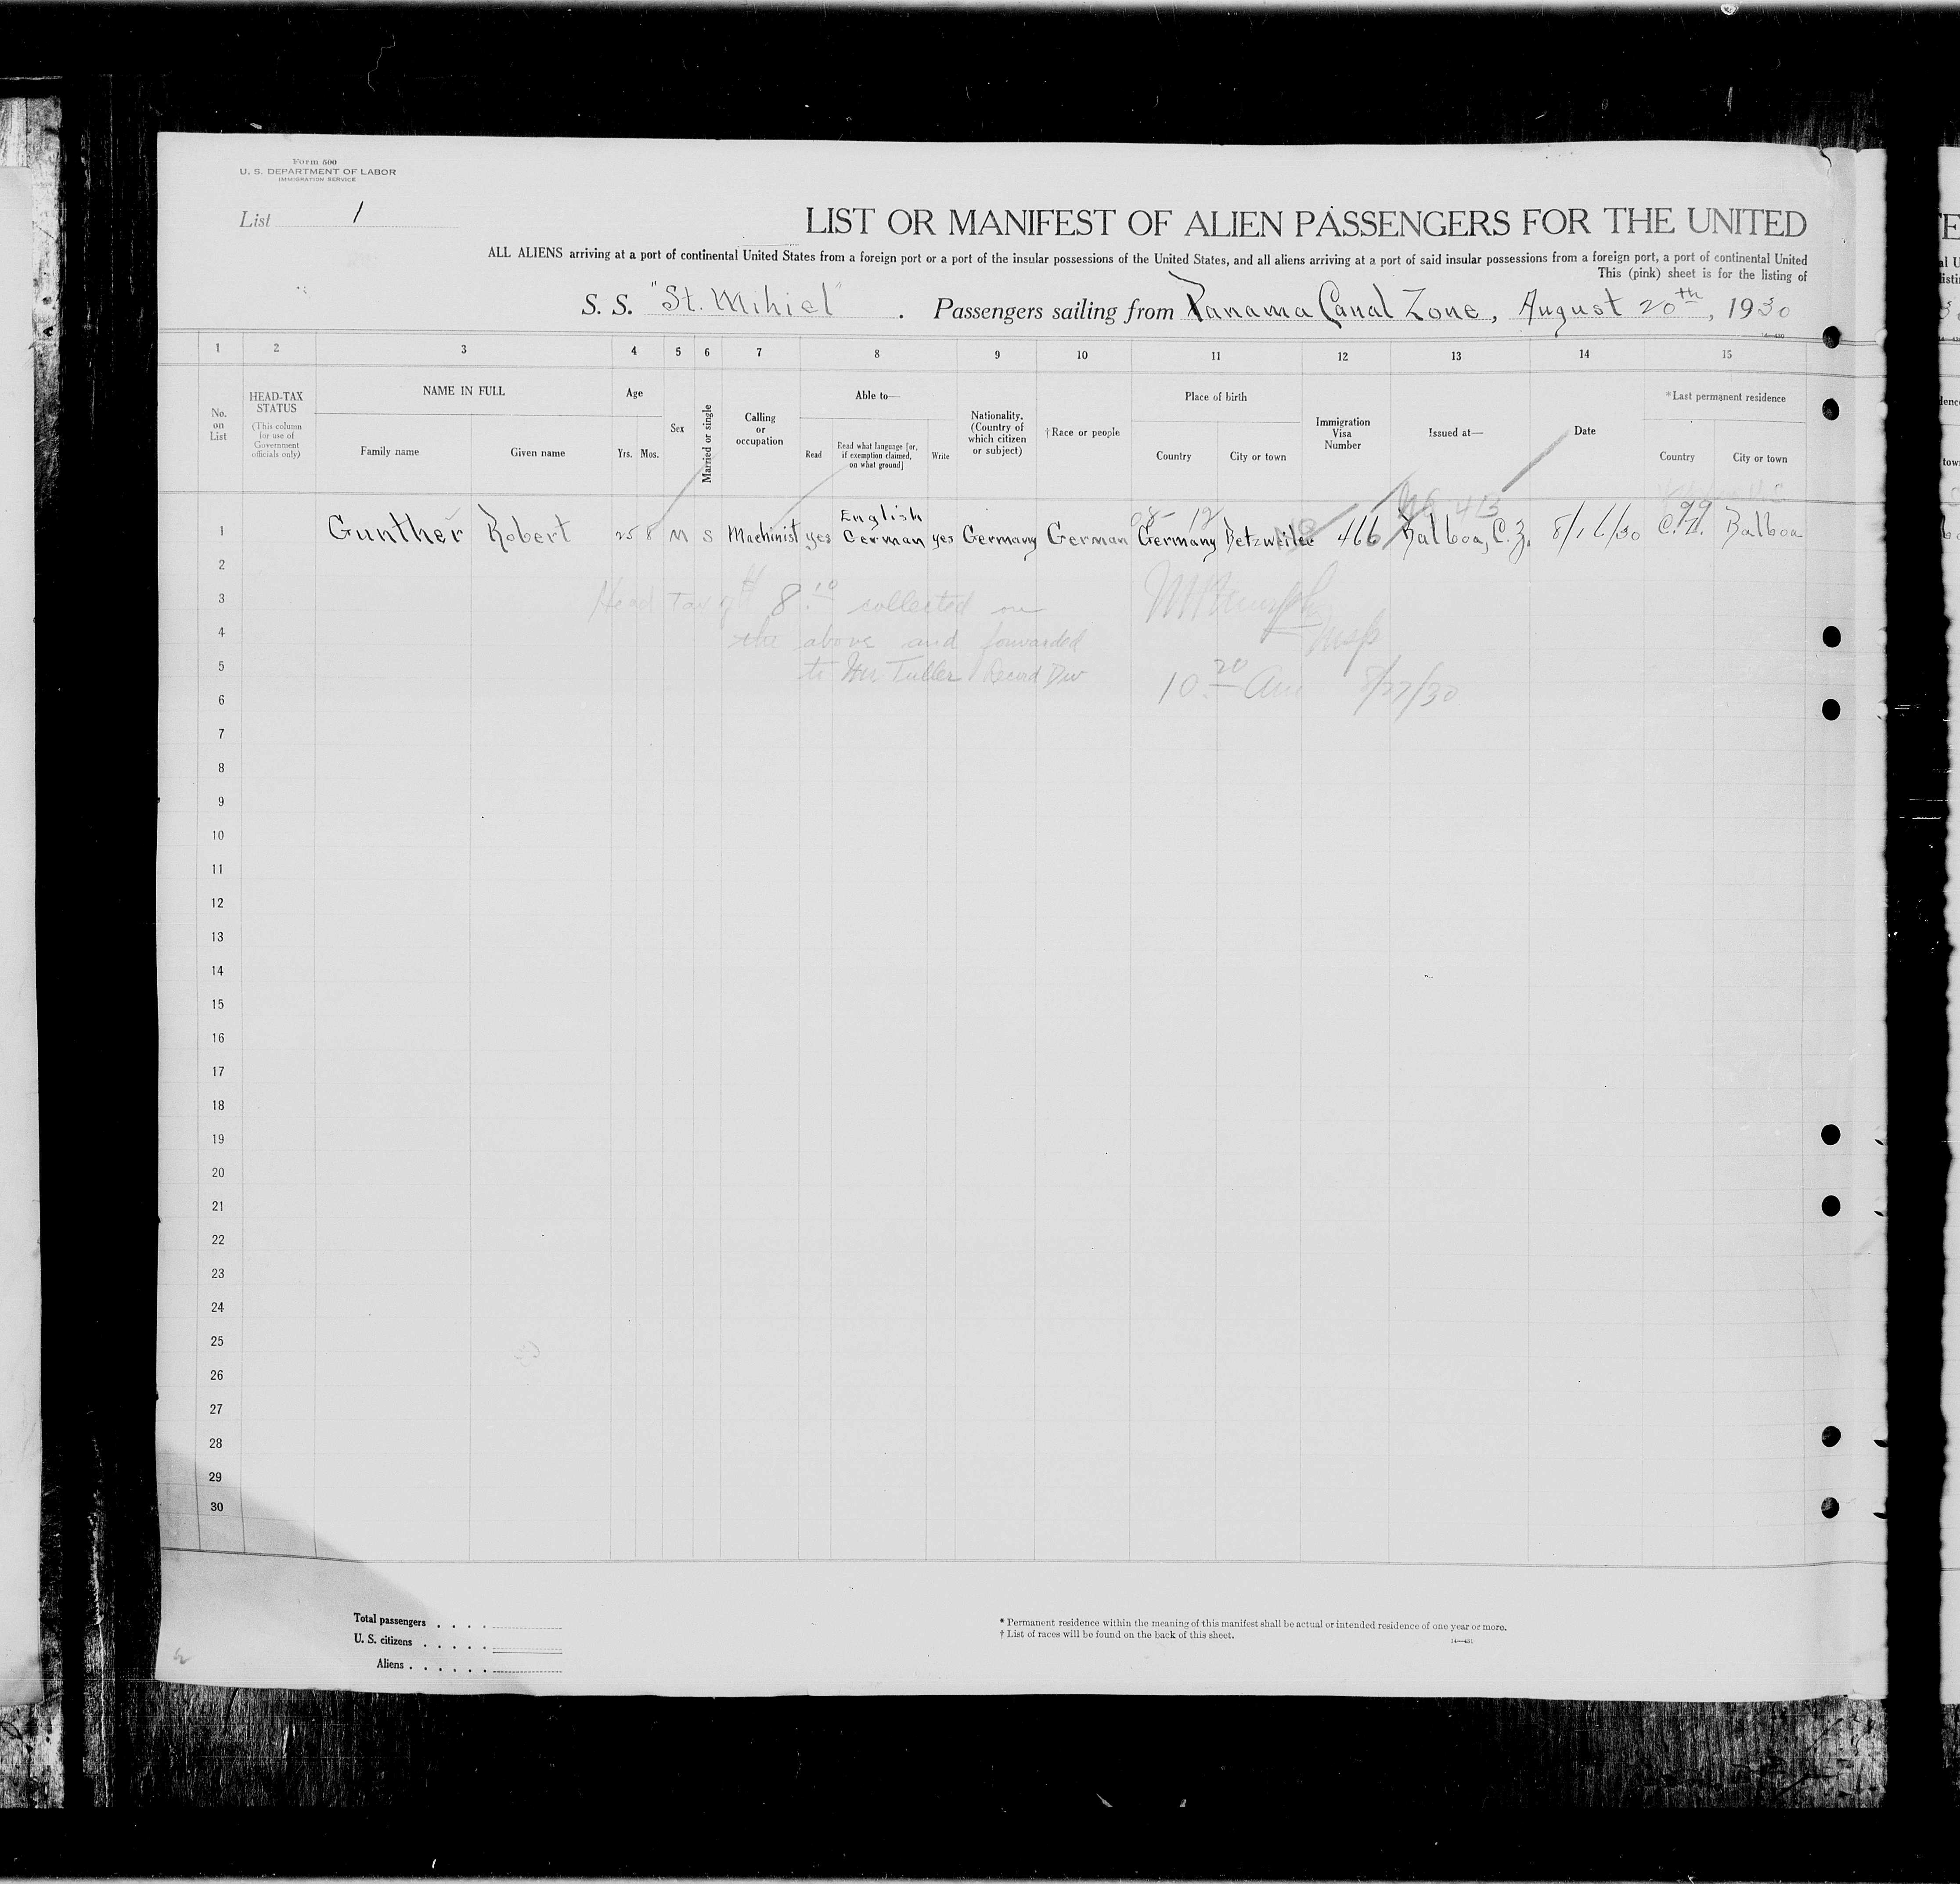 Form 500
U. S. DEPARTMENT OF LABOR
IMMIGRATION SERVICE
List 1
LIST OR MANIFEST OF ALIEN PASSENGERS FOR THE UNITED
ALL ALIENS arriving at a port of continental United States from a foreign port or a port of the insular possessions of the United States, and all aliens arriving at a port of said insular possessions from a foreign port, a port of continental United
This (pink) sheet is for the listing of
S. S. "St. Mihiel". Passengers sailing from Panama Canal Zone, August 20th, 1930
1 2 3 4 5 6 7 8 9 10 11 12 13 14 15
No. on List
HEAD-TAX STATUS
(This column for use of Government officials only)
NAME IN FULL
Family name
Given name
Age
Yrs. Mos.
Sex
Married or single
Calling or occupation
Able to—
Read
Read what language [or, if exemption claimed, on what ground]
Write
Nationality. (Country of which citizen or subject)
†Race or people
Place of birth
Country
City or town
Immigration Visa Number
Issued at—
Date
*Last permanent residence
Country
City or town
1 Gunther Robert 25 8 M S Machinist yes English German yes Germany German Germany Betzweiler 466 Balboa, C.Z. 8/16/30 C.Z. Balboa
Head Tax of $8.10 collected on
the above and forwarded
to Mr Tuller Record Div
Insp
10.20 Am 8/27/30
2
3
4
5
6
7
8
9
10
11
12
13
14
15
16
17
18
19
20
21
22
23
24
25
26
27
28
29
30
Total passengers
U. S. citizens
Aliens
* Permanent residence within the meaning of this manifest shall be actual or intended residence of one year or more.
† List of races will be found on the back of this sheet.